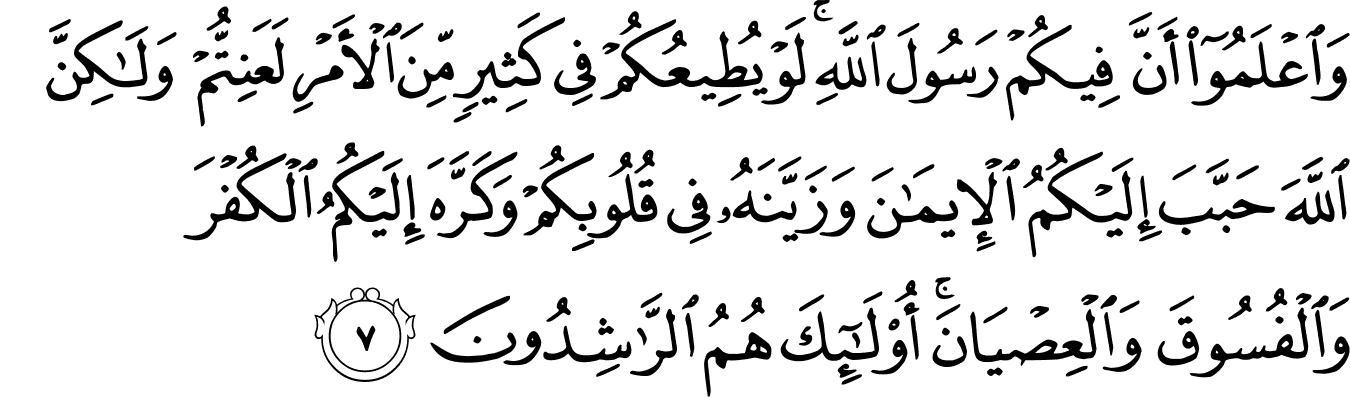 وَٱعۡلَمُوٓاْ أَنَّ فِيكُمۡ رَسُولَ ٱللَّهِۚ لَوۡ يُطِيعُكُمۡ فِي كَثِيرٖ مِّنَ ٱلۡأَمۡرِ لَعَنِتُّمۡ وَلَٰكِنَّ
ٱللَّهَ حَبَّبَ إِلَيۡكُمُ ٱلۡإِيمَٰنَ وَزَيَّنَهُۥ فِي قُلُوبِكُمۡ وَكَرَّهَ إِلَيۡكُمُ ٱلۡكُفۡرَ
وَٱلۡفُسُوقَ وَٱلۡعِصۡيَانَۚ أُوْلَٰٓئِكَ هُمُ ٱلرَّٰشِدُونَ ٧